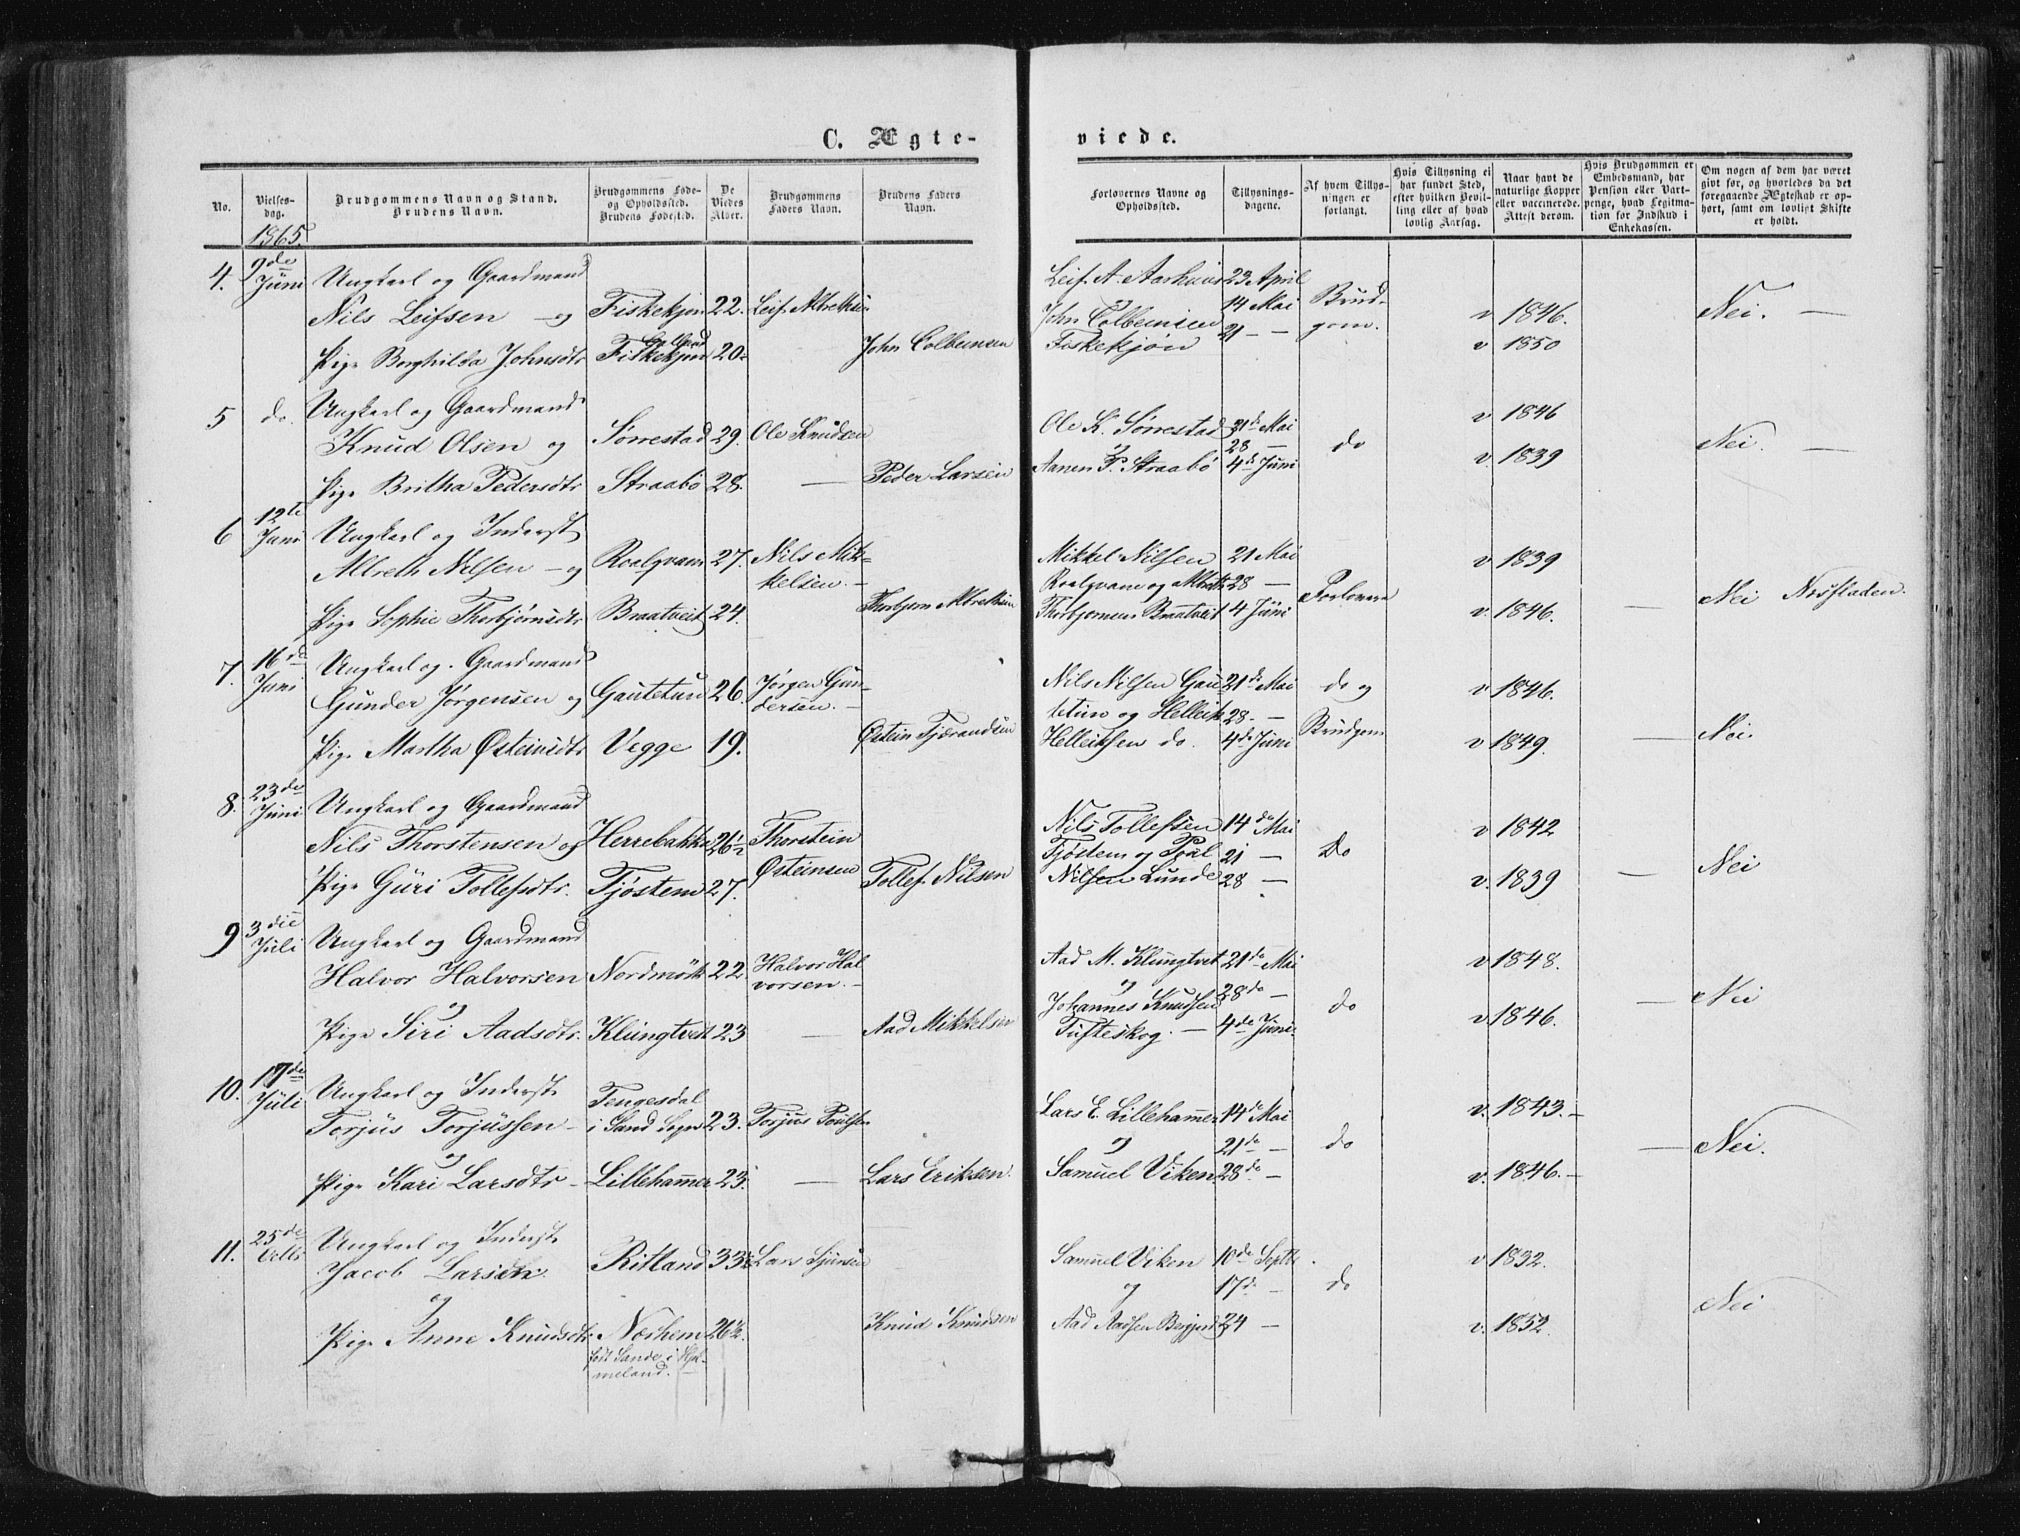 C. Ægte-
viede.
No.
Vielses-
dag.
Brudgommens Navn og Stand.
Brudens Navn.
Brudgommens Føde-
og Opholdssted.
Brudens Fødested.
De
Viedes
Alder.
Brudgommens
Faders Navn.
Brudens Faders
Navn.
Forlovernes Navne og
Opholdssted.
Tillysnings-
dagene.
Af hvem Tillys-
ningen er
forlangt.
Hvis Tillysning ei
har fundet Sted,
efter hvilken Bevil-
ling eller af hvad
lovlig Aarsag.
Naar havt de
naturlige Kopper
eller vaccinerede.
Attest derom.
Hvis Brudgommen er
Embedsmand, har
Pension eller Vart-
penge, hvad Legitima-
tion for Indskud i
Enkekassen.
Om nogen af dem har været
givt før, og hvorledes da det
foregaaende Ægteskab er op-
hørt, samt om lovligt Skifte
er holdt.
1865.
4. 9de Juni
Ungkarl og Gaardmand
Nils Leifsen – og Fiskekjøn 22. Leif Albretsen
Pige Borghilda Johnsdtr Fiskekjøn 20. John Colbeinsen
Leif A. Aarhuus 23 April
John Colbeinsen 14 Mai Brud-
Fiskekjøn 21 – gom.
v 1846. Nei. –
v 1850
5 do. Ungkarl og Gaardmand
Knud Olsen og Sørrestad 29. Ole Knudsen
Pige Britha Pedersdtr Straabø 28. – Peder Larsen
Ole K. Sørrestad 21de Mai v 1846
og 28 – do Nei. –
Aanen P. Straabø 4de Juni v. 1839
6 12te Juni Ungkarl og Inderst
Albreth Nilsen – og Roalqvam 27. Nils Mik-
kelsen. –
Pige Sophie Thorbjørnsdtr Braatveit 24. Thorbjørn Albretsen
Mikkel Nilsen 21 Mai v 1839
Roalqvam og Albreth 28 – Forlovere
Thorbjørnsen Braatveit 4 Juni v. 1846. – Nei Nesfladen.
7. 16de Juni Ungkarl og Gaardmand
Gunder Jørgensen og Gautetun 26. Jørgen Gun-
dersen. –
Pige Martha Østeinsdtr Vegge 19. Østein Tjerandsen
Nils Nilsen Gau- 21de Mai do og v 1846.
tetun og Helleik 28. – Brudgom
Helleiksen do. 4de Juni v 1849. – Nei.
8. 23de Juni Ungkarl og Gaardmand
Nils Thorstensen og Herrebakka 26½ Thorstein
Østeinsen
Pige Guri Tollefsdtr. Tjøstem 27. Tollef Nilsen
Nils Tollefsen 14de Mai v 1842
Tjøstem og Poul 21 – Do
Nilsen Lunde 28 – v. 1839 – Nei
9 3die Juli Ungkarl og Gaardmand
Halvor Halvorsen Nordmørk 22. Halvor Hal-
vorsen. –
og
Pige Siri Aadsdtr. Klungtveit 23 – Aad Mikkelsen
Aad M. Klungtvet 21de Mai v 1848.
og 28de –
Johannes Knudsen do – Nei
Tufteskog. – 4de Juni. v. 1846.
10. 17de Juli Ungkarl og Inderst. Tengesdal
Torjus Torjussen – i Sand Sogn 23. Torjus Poulsen
og
Pige Kari Larsdtr – Lillehammer 23. – Lars Eriksen.
Lars E. Lillehammer 14de Mai v. 1843. –
og 21de – do – Nei.
Samuel Viken 28de – v. 1846. –
11. 25de Octbr Ungkarl og Inderst.
Jacob Larsen Ritland 33½ Lars Sjursen
og
Pige Anne Knudsdtr Nærhem 26½ Knud Knudsen
født Sande i Hjel-
meland.
Samuel Viken 10de Septbr. v 1832.
og 17de – do
Aad Aadsen 24 – v. 1852. Nei